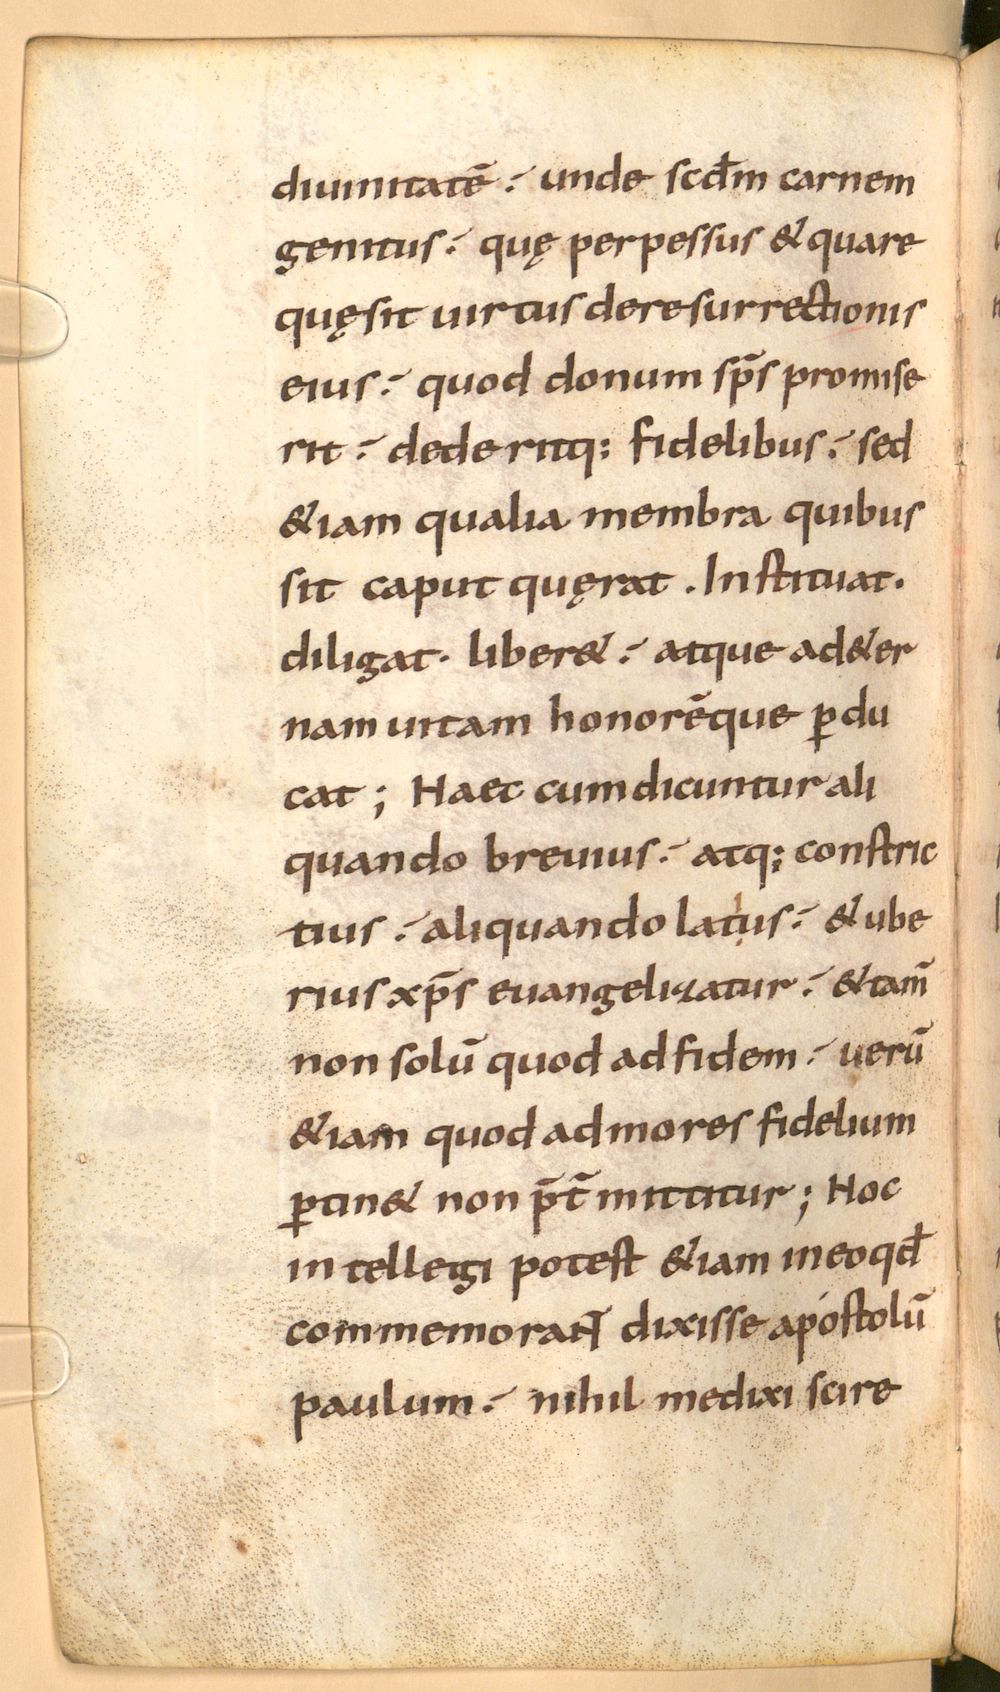 diuinitatē : unde scđm carnem
genitus : quę perpessus & quare
quę sit uirtus de resurrectionis
eius : quod donum sp̄s promise
rit : dederitq: fidelibus : sed
&iam qualia membra quibus
sit caput quęrat . Instituat .
diligat . liber& : atque ad &er
nam uitam honorēque p̱du
cat ; Haec cum dicuntur ali
quando breuius : atq; constric
tius : aliquando latius : & ube
rius xp̄s euangelizatur : & tam̄
non solū quod ad fidem : uerū
&iam quod ad mores fidelium
p̱tin& non p̄t̄mittitur ; Hoc
intellegi potest &iam in eo qđ
commemorañ dixisse apóstolū
paulum : nihil me dixi scire